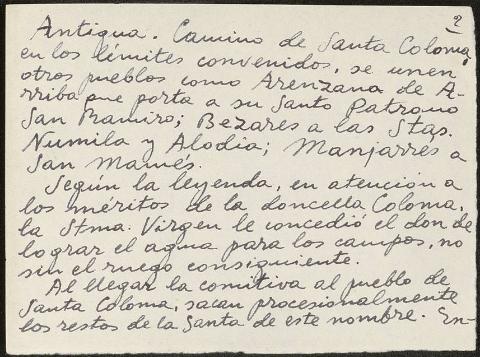 2
Antigua. Camino de Santa Coloma,
en los límites convenidos, se unen
otros pueblos como Arenzana de A-
rriba que porta a su Santo Patrono
San Ramiro; Bezares a las Stas.
Numila y Alodia; Manjarrés a
San Mamés.
Según la leyenda, en atención a
los méritos de la doncella Coloma,
la Stma. Virgen le concedió el don de
lograr el agua para los campos, no
sin el ruego consiguiente.
Al llegar la comitiva al pueblo de
Santa Coloma, sacan procesionalmente
los restos de la Santa de este nombre. En-